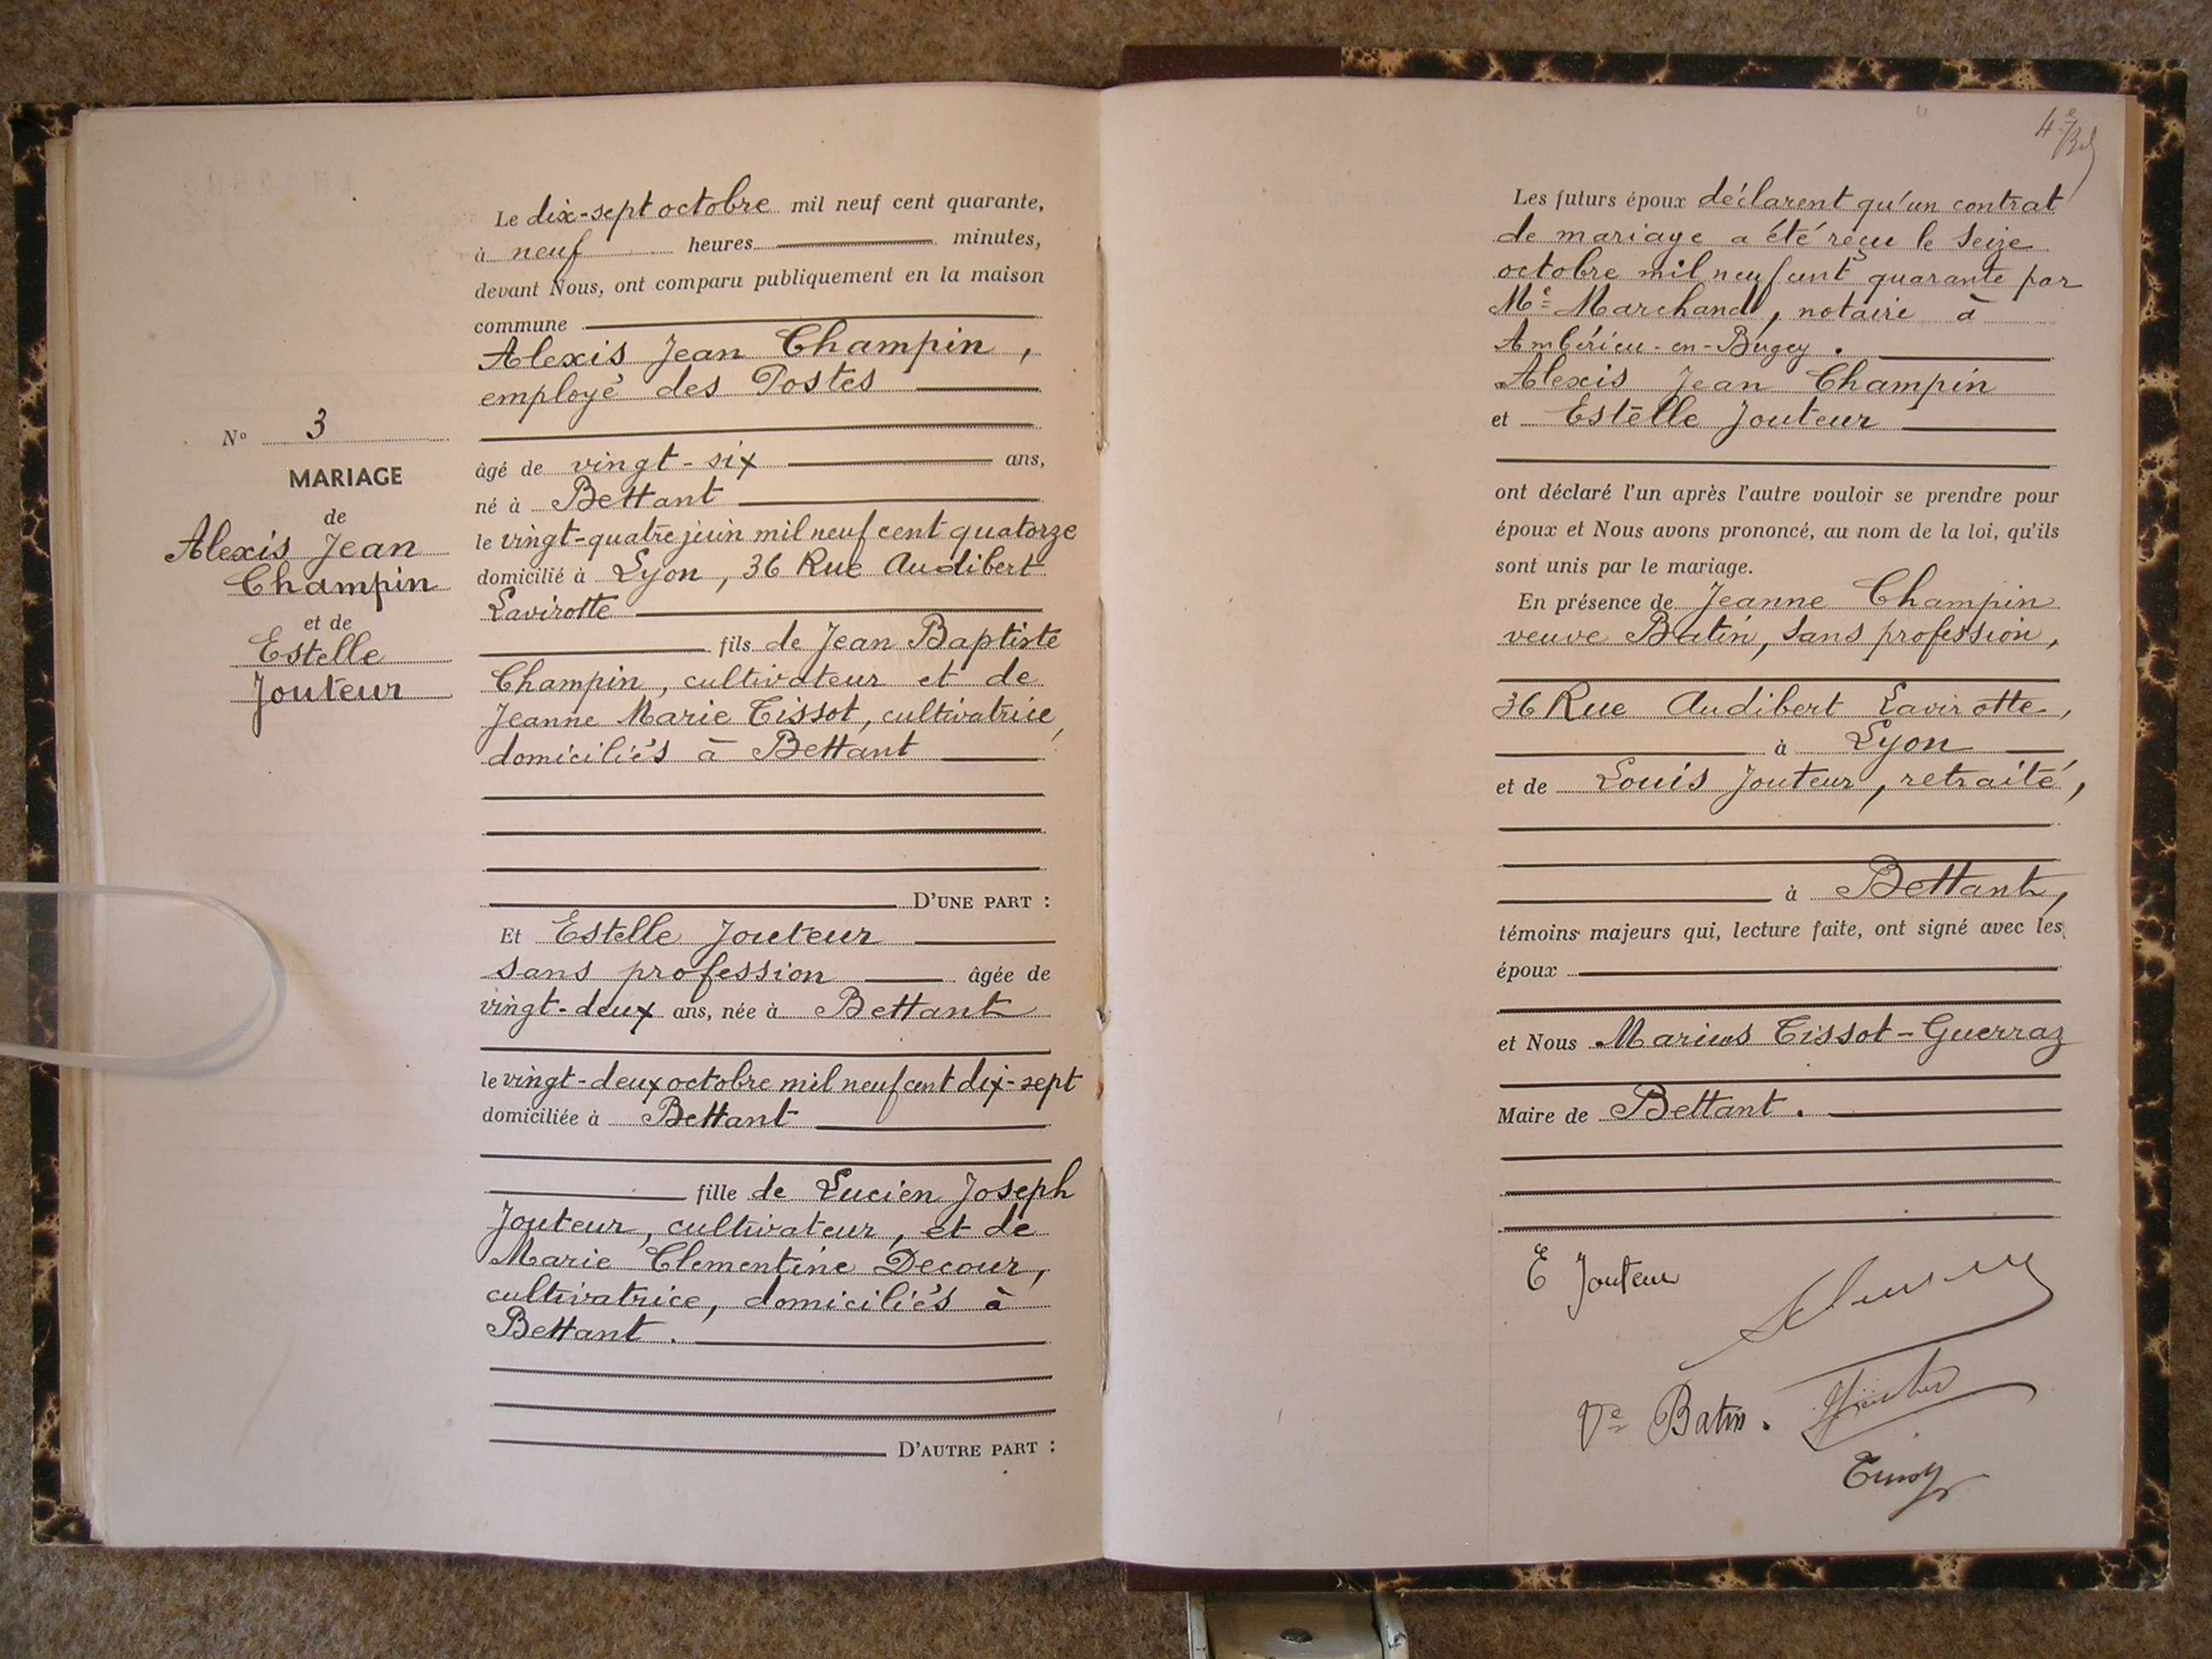 N° 3
MARIAGE
de
Alexis Jean
Champin
et de
Estelle
Jouteur
Le dix-sept octobre mil neuf cent quarante,
à neuf heures minutes,
devant Nous, ont comparu publiquement en la maison
commune
Alexis Jean Champin,
employé des Postes
âgé de vingt-six ans,
né à Bettant
le vingt-quatre juin mil neuf cent quatorze
domicilié à Lyon, 36 Rue Audibert
Lavirotte
fils de Jean Baptiste
Champin, cultivateur et de
Jeanne Marie Tissot, cultivatrice,
domiciliés à Bettant
D'UNE PART :
Et Estelle Jouteur
sans profession âgée de
vingt-deux ans, née à Bettant
le vingt-deux octobre mil neuf cent dix-sept
domiciliée à Bettant
fille de Lucien Joseph
Jouteur, cultivateur, et de
Marie Clementine Decour,
cultivatrice, domiciliés à
Bettant.
D'AUTRE PART :
4e
Les futurs époux déclarent qu'un contrat
de mariage a été reçu le seize
octobre mil neuf cent quarante par
Me Marchand, notaire à
Ambérieu-en-Bugey.
Alexis Jean Champin
et Estelle Jouteur
ont déclaré l'un après l'autre vouloir se prendre pour
époux et Nous avons prononcé, au nom de la loi, qu'ils
sont unis par le mariage.
En présence de Jeanne Champin
veuve Batin, sans profession,
36 Rue Audibert Lavirotte,
à Lyon
et de Louis Jouteur, retraité,
à Bettant,
témoins majeurs qui, lecture faite, ont signé avec les
époux
et Nous Marius Tissot-Guerraz
Maire de Bettant.
E Jouteur
Ve Batin.